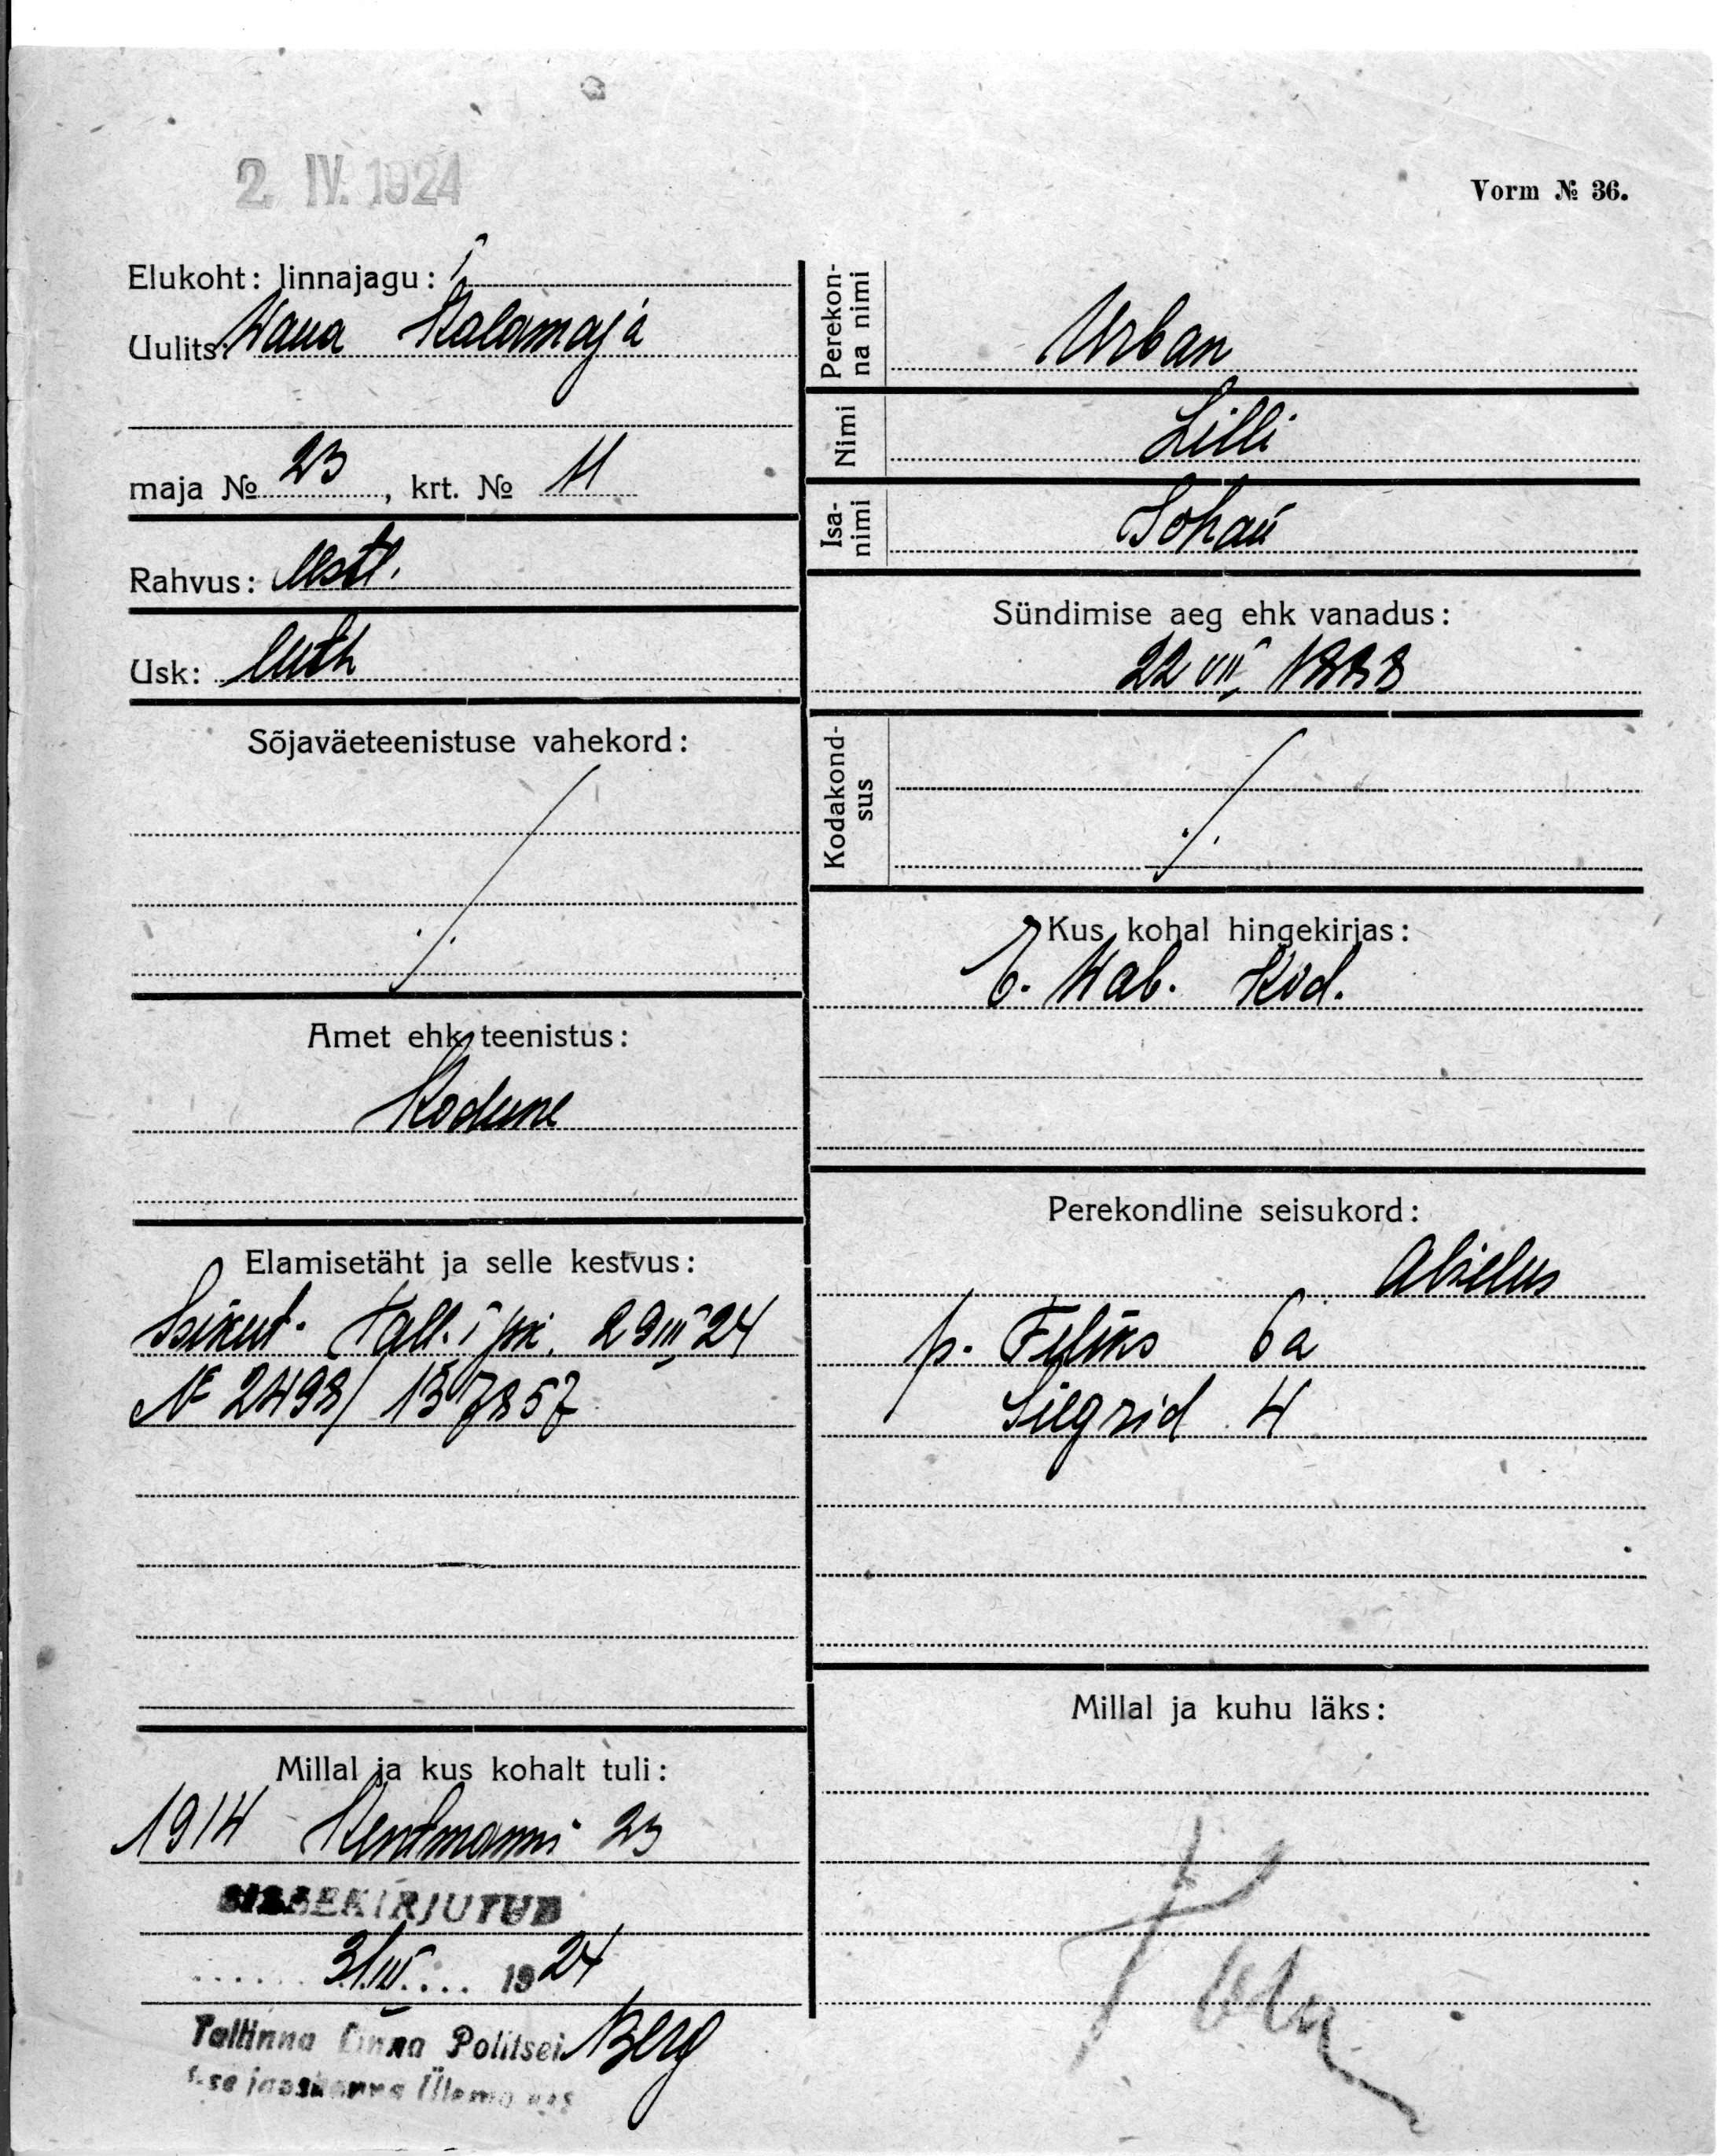 2. IV. 1924
Vorm № 36.
Elukoht: linnajagu: I
Uulits: Wana Kalamaja
maja № 23, krt. № 11
Rahvus: eestl.
Usk: luth
Sõjaväeteenistuse vahekord:
./.
Amet ehk teenistus:
Kodune
Elamisetäht ja selle kestvus:
Isikut. Tall. I jsk. 29 III 24
№ 2498/137857
Millal ja kus kohalt tuli:
1914 Kentmanni 23
SISSEKIRJUTUD
31.III. 1924
Tallinna Linna Politsei Berg
I-se jaoskonna Ülema abi
Perekonna nimi
Urban
Nimi
Lilli
Isanimi
Johan
Sündimise aeg ehk vanadus:
22 VII 1888
Kodakondsus
./.
Kus kohal hingekirjas:
E. Wab. Kod.
Perekondline seisukord:
Abielus
p. Feliks 6 a
Siegrid 4
Millal ja kuhu läks: